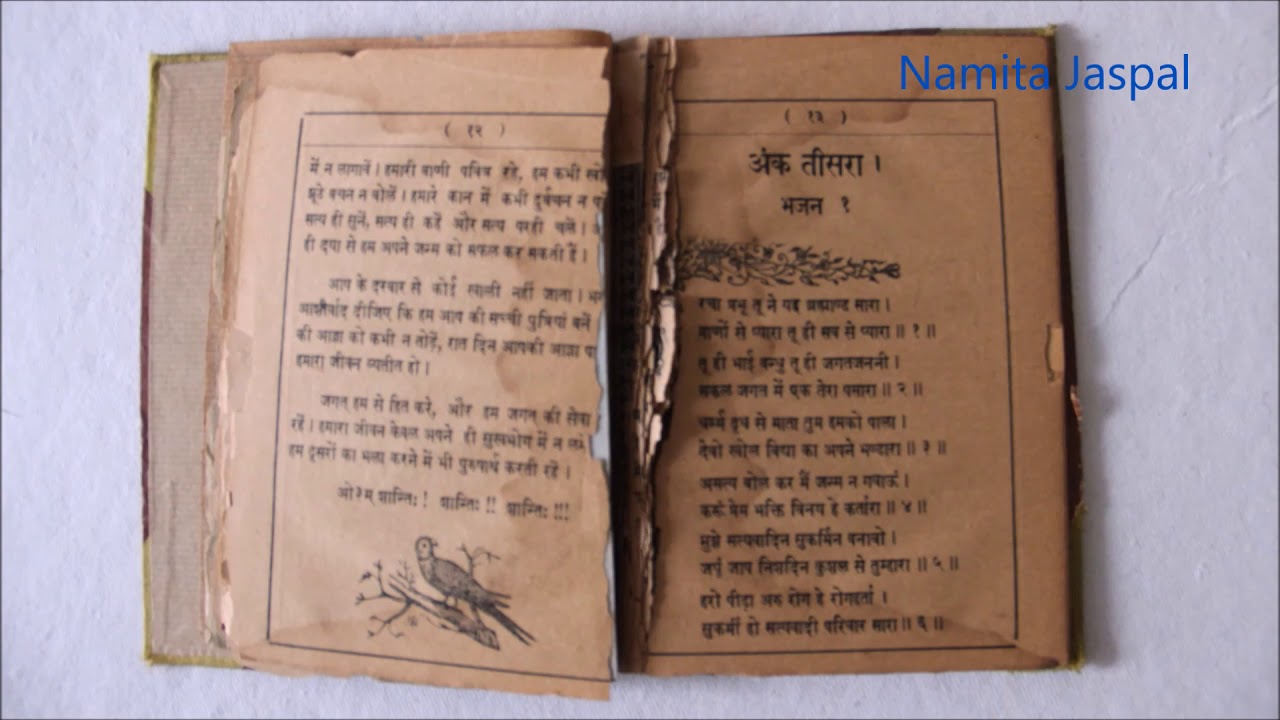 Namita Jaspal
( १२ )
में न लागावें । हमारी वाणी पवित्र रहे, हम कभी
झूठे वचन न बोलें । हमारे कान में कभी दुर्वचन न
सत्य ही सुनें, सत्य ही कहें और सत्य परही चलें ।
ही दया से हम अपने जन्म को सफल कर सकती हैं ।
आप के दरबार से कोई खाली नहीं जाता ।
आशीर्वाद दीजिए कि हम आप की सच्ची पुत्रियां बनें
की आज्ञा को कभी न तोड़ें, रात दिन आपकी आज्ञा
हमारा जीवन व्यतीत हो ।
जगत् हम से हित करे, और हम जगत् की सेवा
रहें । हमारा जीवन केवल अपने ही सुखभोग में न लगे
हम दूसरों का भला करने में भी पुरुषार्थ करती रहें ।
ओ३म् शान्तिः ! शान्तिः !! शान्तिः !!!
( १३ )
अंक तीसरा ।
भजन १
रचा प्रभू तू ने यह ब्रह्माण्ड सारा ।
प्राणों से प्यारा तू ही सब से प्यारा ॥ १ ॥
तू ही भाई बन्धु तू ही जगतजननी ।
सकल जगत में एक तेरा पसारा ॥ २ ॥
धर्म्म दूध से माता तुम हमको पाला ।
देवो खोल विद्या का अपने भण्डारा ॥ ३ ॥
असत्य बोल कर मैं जन्म न गवाऊं ।
करूं प्रेम भक्ति विनय हे कर्तारा ॥ ४ ॥
मुझे सत्यवादिन सुकर्मिन बनावो ।
जपूं जाप निशदिन कुशल से तुम्हारा ॥ ५ ॥
हरो पीड़ा अरु रोग हे रोगहर्ता ।
सुकर्मी हो सत्यवादी परिवार सारा ॥ ६ ॥